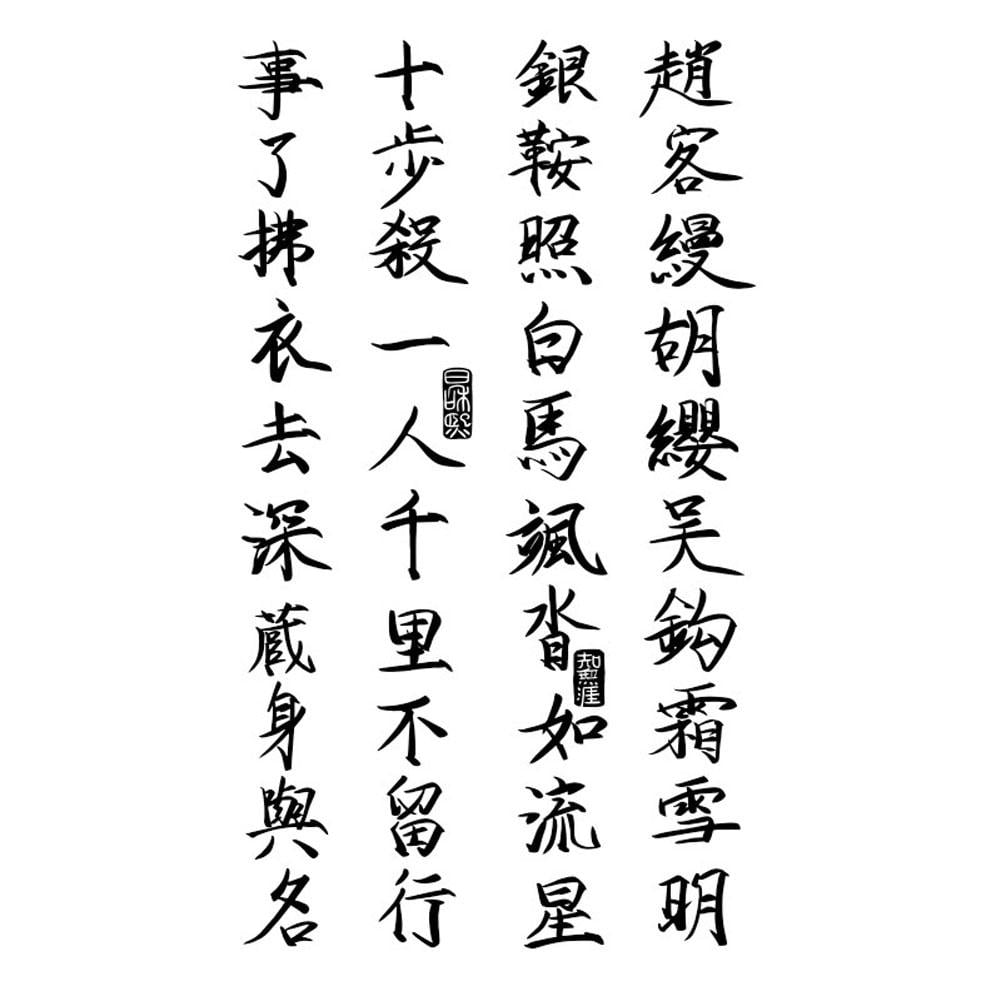 趙客縵胡纓吳鉤霜雪明
銀鞍照白馬颯沓如流星
十步殺一人千里不留行
事了拂衣去深蔵身與名